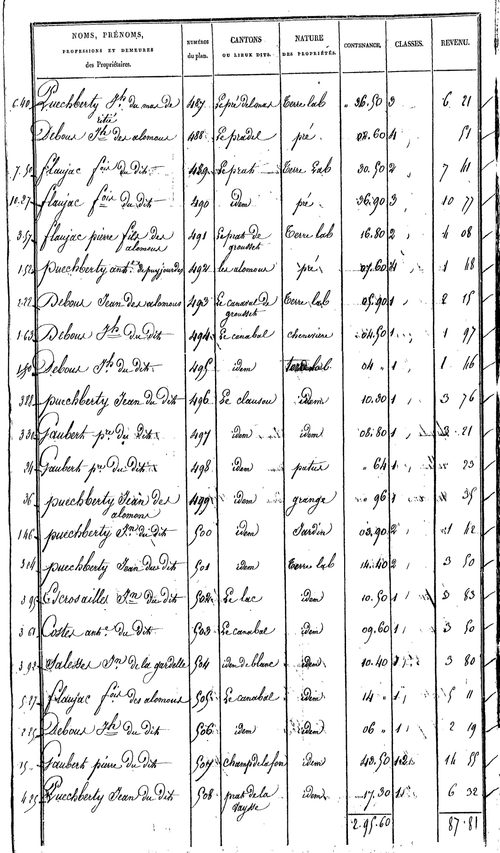 NOMS, PRÉNOMS, PROFESSIONS ET DEMEURES des Propriétaires. NUMÉROS du plan. CANTONS OU LIEUX DITS. NATURE DES PROPRIÉTÉS. CONTENANCE. CLASSES. REVENU.
Puechberty Jh du mas de 487 Le pré del mas Terre lab 36.50 3 6 21
Debous Jh des alomous 488 Le pradel pré 08.60 4 51
7.50 flaujac fois du dit 489 Le prat Terre Lab 30.50 2 7 41
10.27 flaujac fois du dit 490 idem pré 36.90 3 10 77
3.57 flaujac pierre fils des alomous 491 Le prat de grousset Terre lab 16.80 2 4 08
152 puechberty ant. 492 les alomous pré 07.60 4 1 48
222 Debous Jean des alomous 493 Le canaval de grousset Terre lab 05.90 1 2 15
1.63 Debous Jh du dit 494 Le canabal cheneviere 04.50 1 1 97
Debous Jh du dit 495 idem 04 1 1 46
388 puechberty Jean du dit 496 Le clausou idem 10.30 1 3 76
331 Gaubert pre du dit 497 idem idem 08.80 1 3 21
24 Gaubert pre du dit 498 idem patus 64 1 23
36 puechberty Jean des alomous 499 idem grange 96 1 35
146 puechberty Jn du dit 500 idem Jardin 03.90 2 1 42
314 puechberty Jean du dit 501 idem Terre lab 14.40 2 3 50
395 Escrosailles Jn du dit 502 Le lac idem 10.50 1 3 83
361 Costes ant. du dit 503 Le canabal idem 09.60 1 3 50
392 Salesses Jn de la gardelle 504 idem de blanc idem 10.40 1 3 80
527 flaujac fois des alomous 505 Le canabal idem 14 1 5 11
225 Debous Jh du dit 506 idem idem 06 1 2 19
15 Gaubert pierre du dit 507 champ de la fon idem 43.50 14 55
425 Puechberty Jean du dit 508 prat de la vaysse idem 17.30 1 6 32
2.95.60 87.81